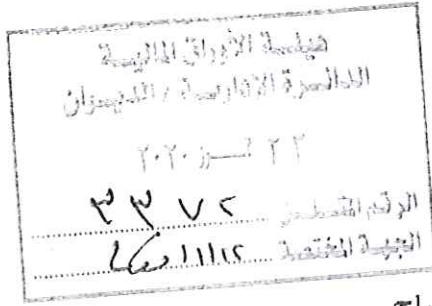 هيئة الأوراق المالية
الدائرة الإدارية / الديوان
٢٢ تموز ٢٠٢٠
الرقم المتسلسل ٣٣٧٢
الجهة المختصة